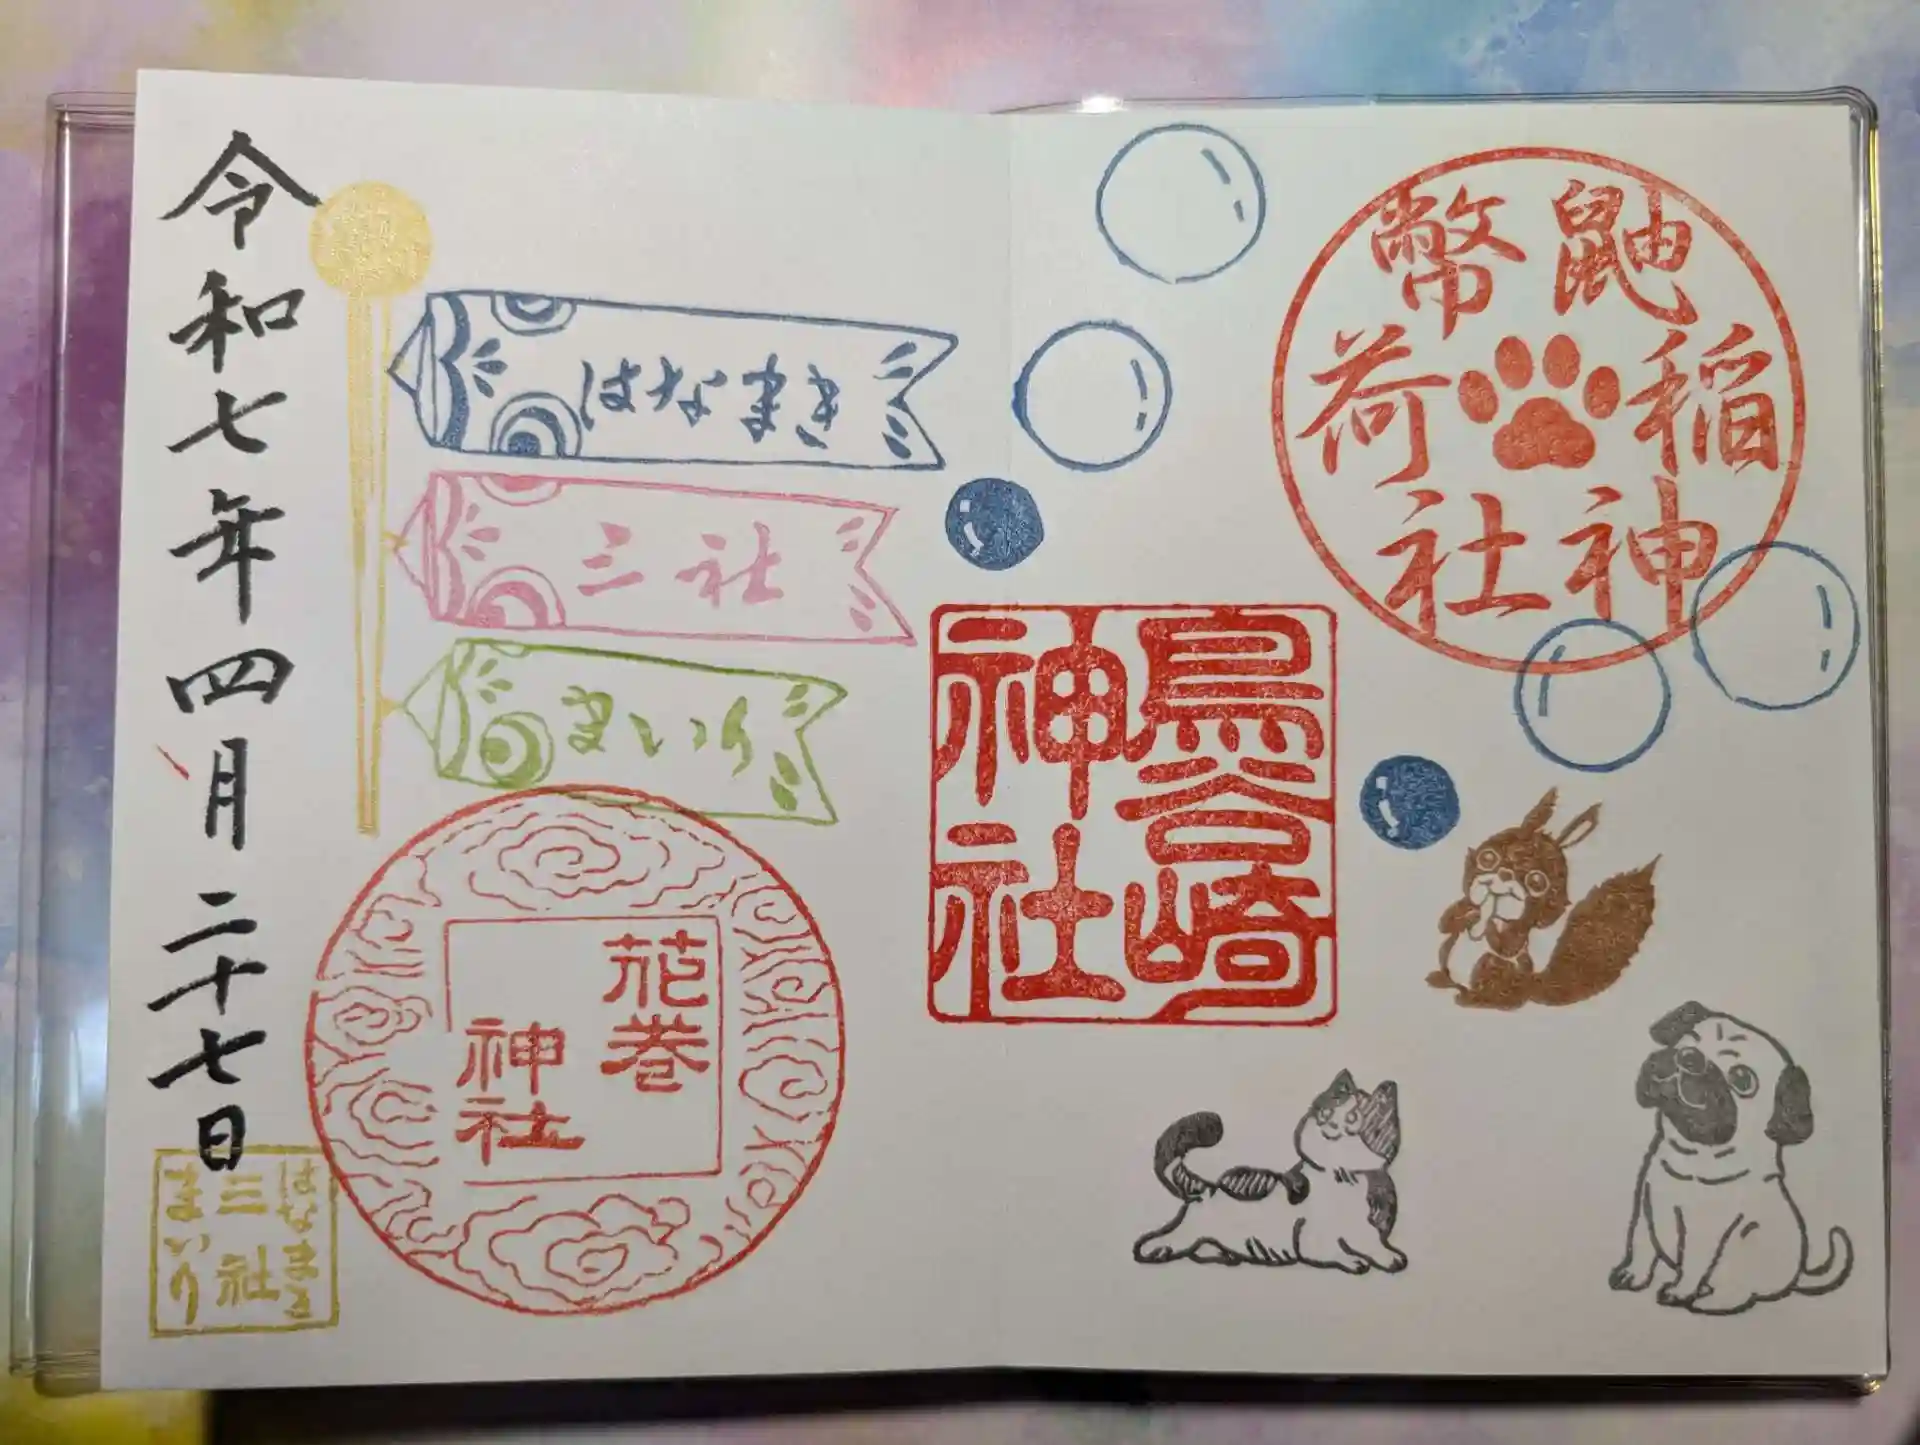 鼬
幣
稲
荷
神
社
鳥谷崎
神社
はなまき
三社
まいり
花巻
神社
令和七年四月二十七日
はなまき
三社
まいり